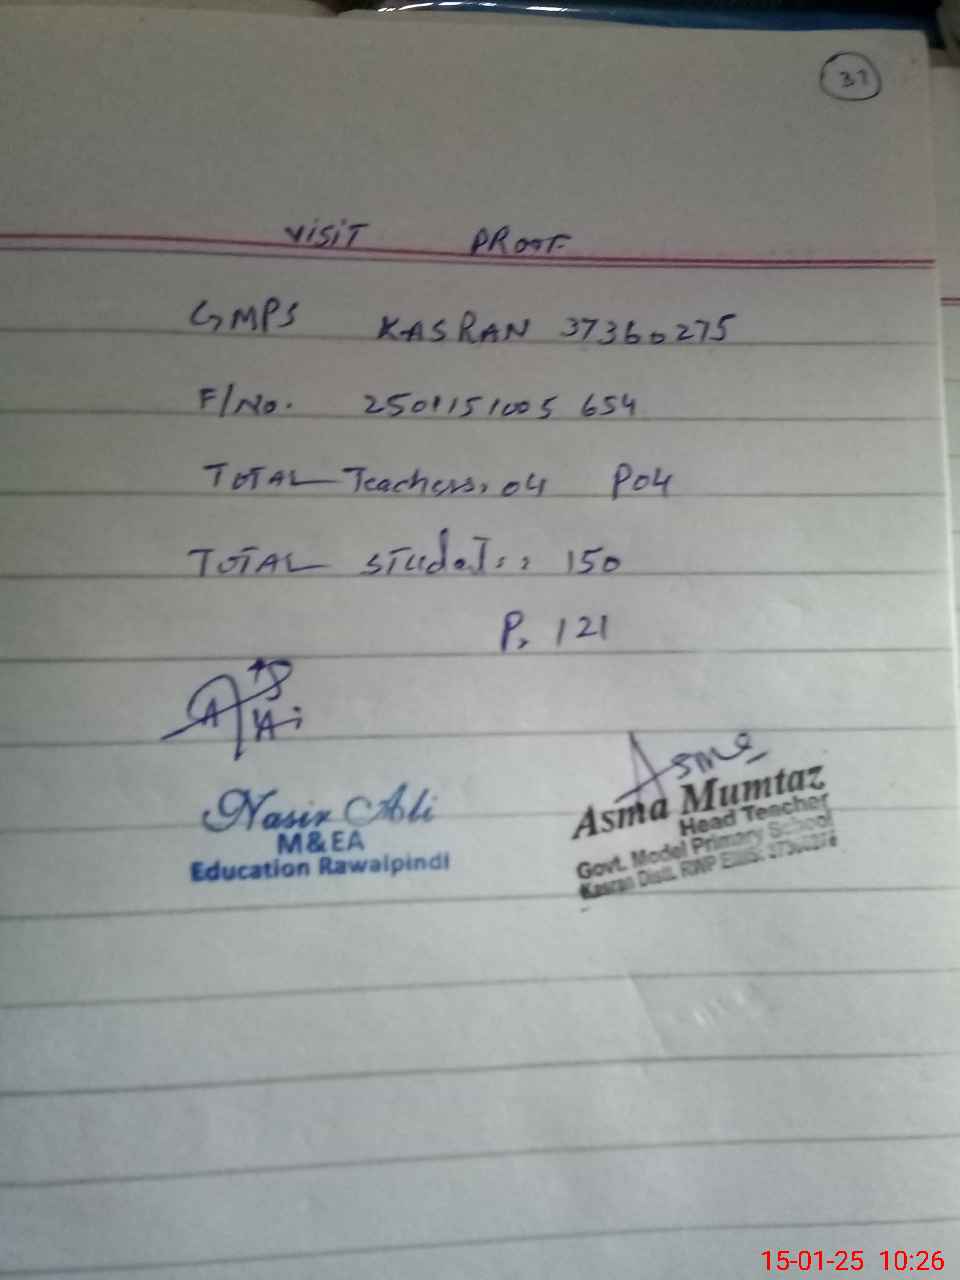 31
VISIT PROOF
GMPS KASRAN 37360275
F/No. 2501151005 654
TOTAL Teachers, 04 P04
TOTAL Students: 150
P, 121
Nasir Ali
M&EA
Education Rawalpindi
Asma
Asma Mumtaz
Head Teacher
Govt. Model Primary School
Kasran Distt. RWP EMIS:
15-01-25 10:26